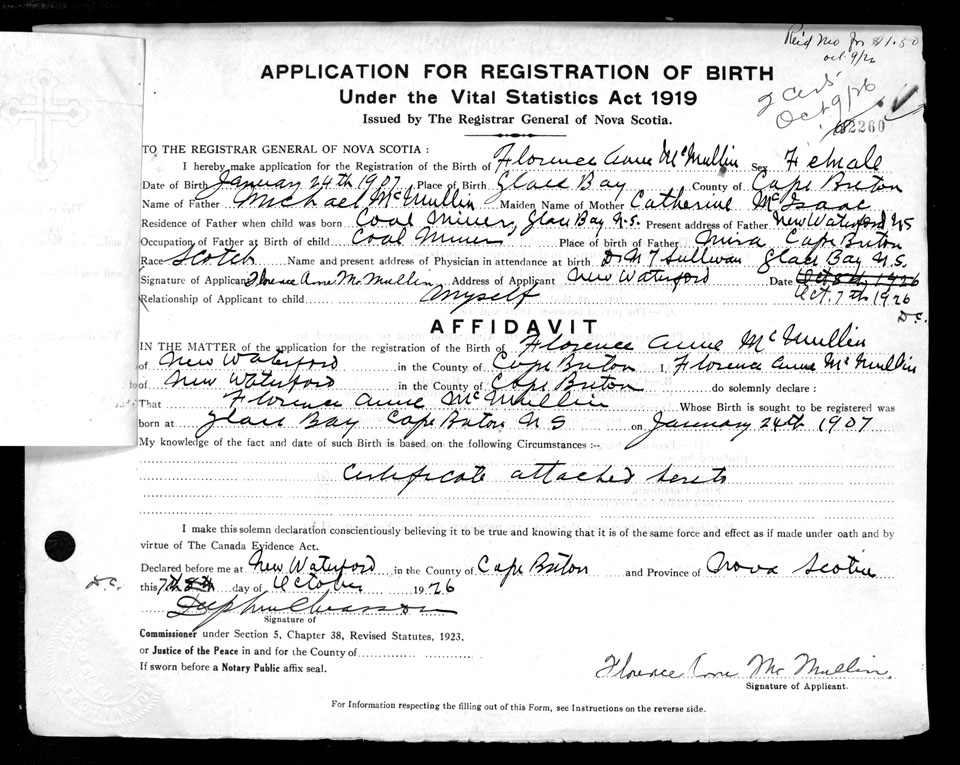 Rec'd Mo for $1.50
Oct 9/26
APPLICATION FOR REGISTRATION OF BIRTH
Under the Vital Statistics Act 1919
2 Certs
Oct 9/26
Issued by The Registrar General of Nova Scotia.
2260
TO THE REGISTRAR GENERAL OF NOVA SCOTIA :
I hereby make application for the Registration of the Birth of Florence Anne McMullin Sex Female
Date of Birth January 24th 1907 Place of Birth Glace Bay County of Cape Breton
Name of Father Michael McMullin Maiden Name of Mother Catherine McIsaac
Residence of Father when child was born Coal Miner, Glace Bay N.S. Present address of Father New Waterford NS
Occupation of Father at Birth of child Coal Miner Place of birth of Father Mira Cape Breton
Race Scotch Name and present address of Physician in attendance at birth Dr M T Sullivan Glace Bay N.S.
Signature of Applicant Florence Anne McMullin Address of Applicant New Waterford Date Oct 8th, 1926
Oct. 7th 1926
Relationship of Applicant to child Myself
D.C.
AFFIDAVIT
IN THE MATTER of the application for the registration of Birth of Florence Anne McMullin
of New Waterford in the County of Cape Breton I, Florence Anne McMullin
of New Waterford in the County of Cape Breton do solemnly declare :
That Florence Anne McMullin Whose Birth is sought to be registered was
born at Glace Bay Cape Breton N S on January 24th 1907
My knowledge of the fact and date of such Birth is based on the following Circumstances :--
Certificate attached hereto
I make this solemn declaration conscientiously believing it to be true and knowing that it is of the same force and effect as if made under oath and by
virtue of The Canada Evidence Act.
Declared before me at New Waterford in the County of Cape Breton and Province of Nova Scotia
D.C. this 7th 8th day of October 1926
Signature of
Commissioner under Section 5, Chapter 38, Revised Statutes, 1923,
or Justice of the Peace in and for the County of
If sworn before a Notary Public affix seal.
Florence Anne McMullin
Signature of Applicant.
For Information respecting the filling out of this Form, see Instructions on the reverse side.